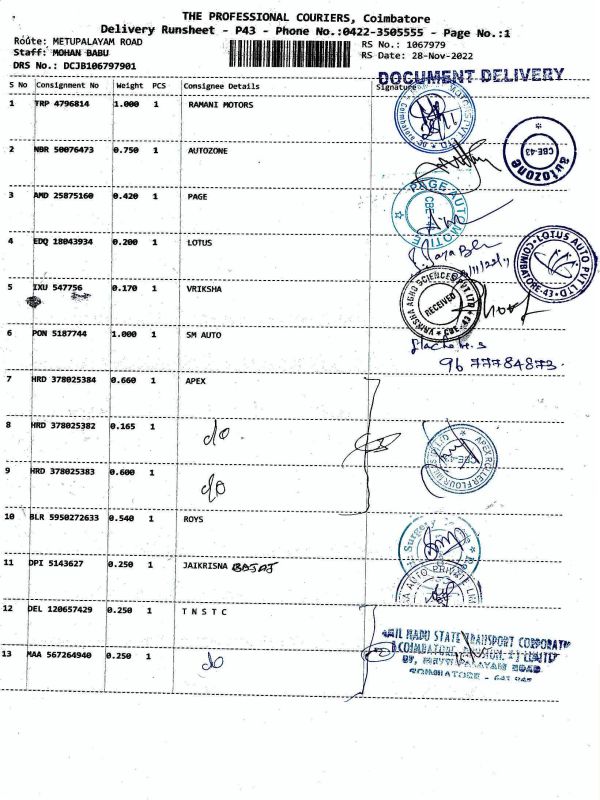 THE PROFESSIONAL COURIERS, Coimbatore
Delivery Runsheet - P43 - Phone No.:0422-3505555 - Page No.:1
Route: METUPALAYAM ROAD
RS No.: 1067979
Staff: MOHAN BABU
RS Date: 28-Nov-2022
DRS No.: DCJB106797901
DOCUMENT DELIVERY
S No Consignment No Weight PCS Consignee Details Signature
1 TRP 4796814 1.000 1 RAMANI MOTORS
2 NBR 50076473 0.750 1 AUTOZONE
CBE-43
autozone
3 AMD 25875160 0.420 1 PAGE
PAGE AUTOMOTIVE
CBE-43
4 EDQ 18043934 0.200 1 LOTUS
LOTUS AUTO PVT LTD
COIMBATORE-43
5 IXU 547756 0.170 1 VRIKSHA
VRIKSHA AGRO SCIENCES PVT LTD
RECEIVED
CBE-43
6 PON 5187744 1.000 1 SM AUTO
96 77784873
7 HRD 378025384 0.660 1 APEX
8 HRD 378025382 0.165 1 do
APEX ROLLER FLOUR
9 HRD 378025383 0.600 1 do
10 BLR 5950272633 0.540 1 ROYS
Surgery
11 DPI 5143627 0.250 1 JAIKRISNA BAJAJ
AUTO PRIVATE
12 DEL 120657429 0.250 1 T N S T C
TAMIL NADU STATE TRANSPORT CORPORATION
COIMBATORE DIVISION LIMITED
13 MAA 567264940 0.250 1 do
ROAD
COIMBATORE - 641